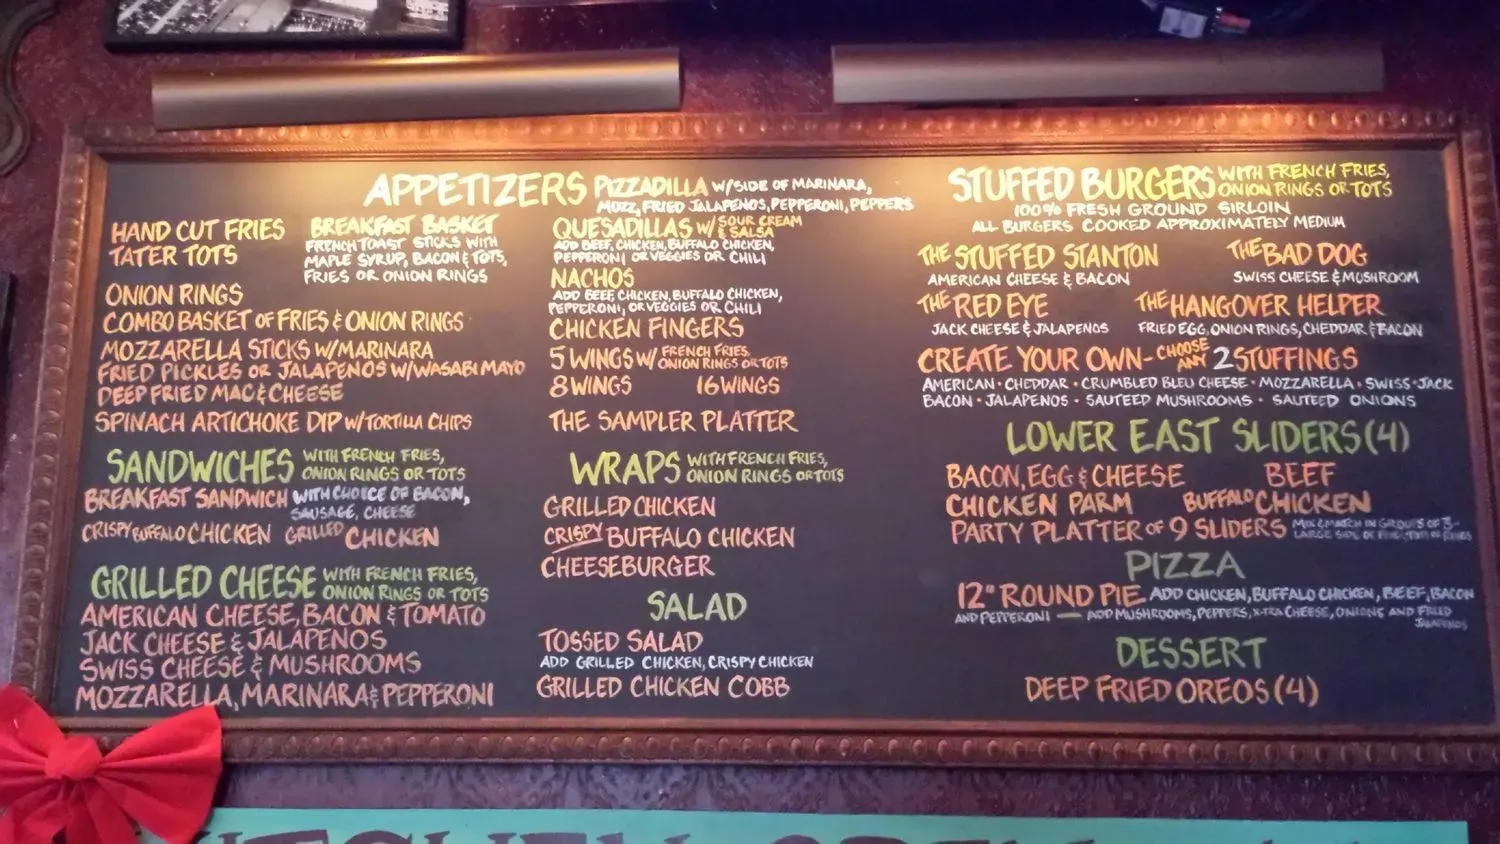 APPETIZERS
HAND CUT FRIES
TATER TOTS
BREAKFAST BASKET
FRENCH TOAST STICKS WITH
MAPLE SYRUP, BACON & TOTS,
FRIES OR ONION RINGS
ONION RINGS
COMBO BASKET OF FRIES & ONION RINGS
MOZZARELLA STICKS W/MARINARA
FRIED PICKLES OR JALAPENOS W/WASABI MAYO
DEEP FRIED MAC & CHEESE
SPINACH ARTICHOKE DIP W/TORTILLA CHIPS
PIZZADILLA W/SIDE OF MARINARA,
MOZZ, FRIED JALAPENOS, PEPPERONI, PEPPERS
QUESADILLAS W/ SOUR CREAM
& SALSA
ADD BEEF, CHICKEN, BUFFALO CHICKEN,
PEPPERONI OR VEGGIES OR CHILI
NACHOS
ADD BEEF, CHICKEN, BUFFALO CHICKEN,
PEPPERONI, OR VEGGIES OR CHILI
CHICKEN FINGERS
5 WINGS W/ FRENCH FRIES,
ONION RINGS OR TOTS
8 WINGS 16 WINGS
THE SAMPLER PLATTER
SANDWICHES WITH FRENCH FRIES,
ONION RINGS OR TOTS
BREAKFAST SANDWICH WITH CHOICE OF BACON,
SAUSAGE, CHEESE
CRISPY BUFFALO CHICKEN GRILLED CHICKEN
GRILLED CHEESE WITH FRENCH FRIES,
ONION RINGS OR TOTS
AMERICAN CHEESE, BACON & TOMATO
JACK CHEESE & JALAPENOS
SWISS CHEESE & MUSHROOMS
MOZZARELLA, MARINARA & PEPPERONI
WRAPS WITH FRENCH FRIES,
ONION RINGS OR TOTS
GRILLED CHICKEN
CRISPY BUFFALO CHICKEN
CHEESEBURGER
SALAD
TOSSED SALAD
ADD GRILLED CHICKEN, CRISPY CHICKEN
GRILLED CHICKEN COBB
STUFFED BURGERS WITH FRENCH FRIES,
ONION RINGS OR TOTS
100% FRESH GROUND SIRLOIN
ALL BURGERS COOKED APPROXIMATELY MEDIUM
THE STUFFED STANTON
AMERICAN CHEESE & BACON
THE BAD DOG
SWISS CHEESE & MUSHROOM
THE RED EYE
JACK CHEESE & JALAPENOS
THE HANGOVER HELPER
FRIED EGG, ONION RINGS, CHEDDAR & BACON
CREATE YOUR OWN - CHOOSE ANY 2 STUFFINGS
AMERICAN • CHEDDAR • CRUMBLED BLEU CHEESE • MOZZARELLA • SWISS • JACK
BACON • JALAPENOS • SAUTEED MUSHROOMS • SAUTEED ONIONS
LOWER EAST SLIDERS (4)
BACON, EGG & CHEESE BEEF
CHICKEN PARM BUFFALO CHICKEN
PARTY PLATTER OF 9 SLIDERS MIX & MATCH IN GROUPS OF 3 -
LARGE SIDE OF FRIES, TOTS OR RINGS
PIZZA
12" ROUND PIE ADD CHICKEN, BUFFALO CHICKEN, BEEF, BACON
AND PEPPERONI — ADD MUSHROOMS, PEPPERS, X-TRA CHEESE, ONIONS AND FRIED
JALAPENOS
DESSERT
DEEP FRIED OREOS (4)